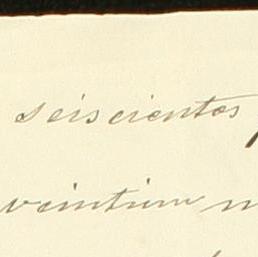 seiscientos
veintiun